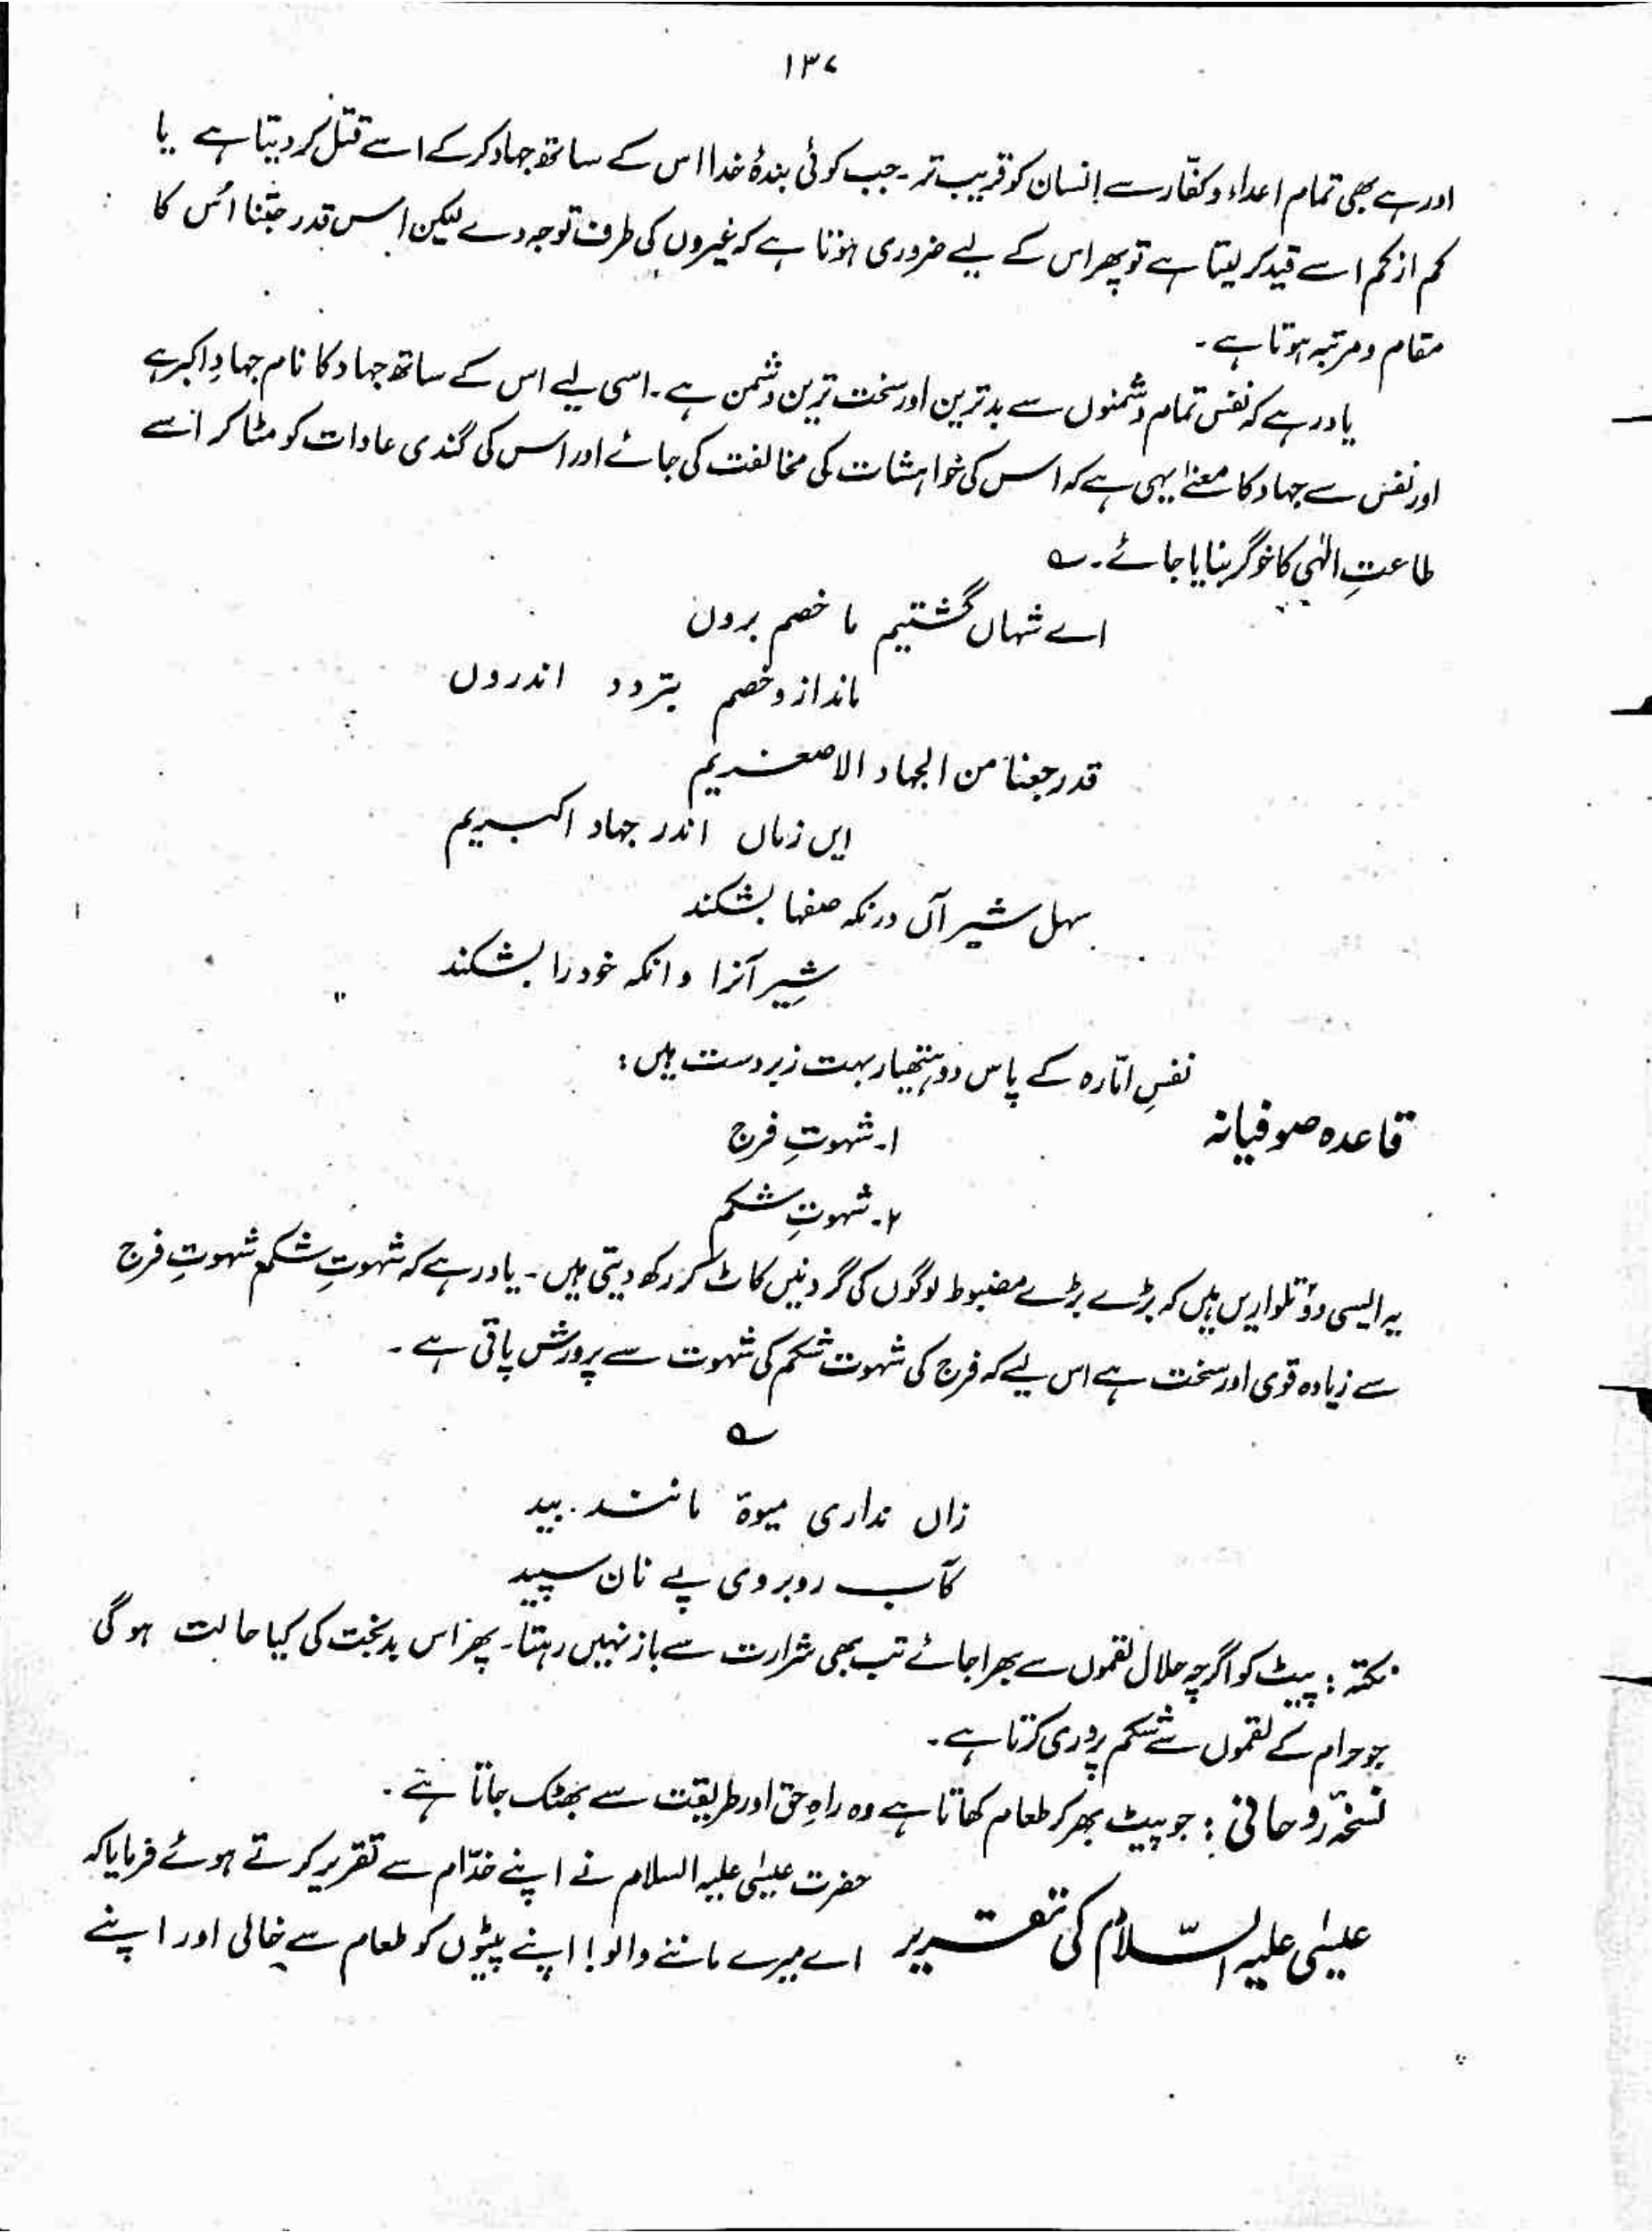 ۱۳۷
اور ہے بھی تمام اعداء و کفّار سے انسان کو قریب تر۔ جب کوئی بندۂ خدا اس کے ساتھ جہاد کر کے اسے قتل کر دیتا ہے یا
کم از کم اسے قید کر لیتا ہے تو پھر اس کے لیے ضروری ہوتا ہے کہ غیروں کی طرف توجہ دے لیکن اس قدر جتنا اُس کا
مقام و مرتبہ ہوتا ہے۔
یاد رہے کہ نفس تمام دشمنوں سے بدترین اور سخت ترین دشمن ہے۔ اسی لیے اس کے ساتھ جہاد کا نام جہادِ اکبر ہے
اور نفس سے جہاد کا معنٰے یہی ہے کہ اس کی خواہشات کی مخالفت کی جائے اور اس کی گندی عادات کو مٹا کر اسے
طاعتِ الٰہی کا خوگر بنایا جائے۔ ؎
اے شہاں گشتیم ما خصم برون
ماند از و خصم بتر دد اندروں
قد رجعنا من الجہاد الاصغریم
ایں زماں اندر جہاد اکبریم
سہل شیر آں درنکہ صفہا بشکند
شیر آنرا دانکہ خود را بشکند
نفسِ امّارہ کے پاس دو ہتھیار بہت زبردست ہیں :
قاعدہ صوفیانہ
۱۔ شہوتِ فرج
۲۔ شہوتِ شکم
یہ ایسی دو تلواریں ہیں کہ بڑے بڑے مضبوط لوگوں کی گردنیں کاٹ کر رکھ دیتی ہیں۔ یاد رہے کہ شہوتِ شکم شہوتِ فرج
سے زیادہ قوی اور سخت ہے اس لیے کہ فرج کی شہوت شکم کی شہوت سے پرورش پاتی ہے۔
؎
زاں نداری میوۃ مانند بید
کآب رو بروی پے نان سپید
نکتہ : پیٹ کو اگرچہ حلال لقموں سے بھرا جائے تب بھی شرارت سے باز نہیں رہتا۔ پھر اس بدبخت کی کیا حالت ہو گی
جو حرام کے لقموں سے شکم پروری کرتا ہے۔
نسخہ روحانی : جو پیٹ بھر کر طعام کھاتا ہے وہ راہِ حق اور طریقت سے بھٹک جاتا ہے۔
حضرت عیسٰی علیہ السلام نے اپنے خدّام سے تقریر کرتے ہوئے فرمایا کہ
عیسٰی علیہ السّلام کی تقریر
اے میرے ماننے والو! اپنے پیٹوں کو طعام سے خالی اور اپنے